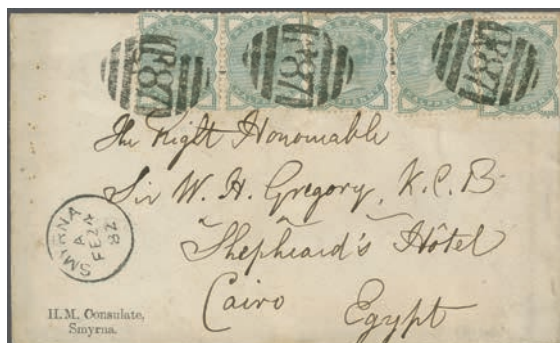 F87
F87
F87
The Right Honourable
Sir W. H. Gregory, K.C.B
Shepheard's Hôtel
Cairo Egypt
SMYRNA
A
FE 24
82
H.M. Consulate,
Smyrna.